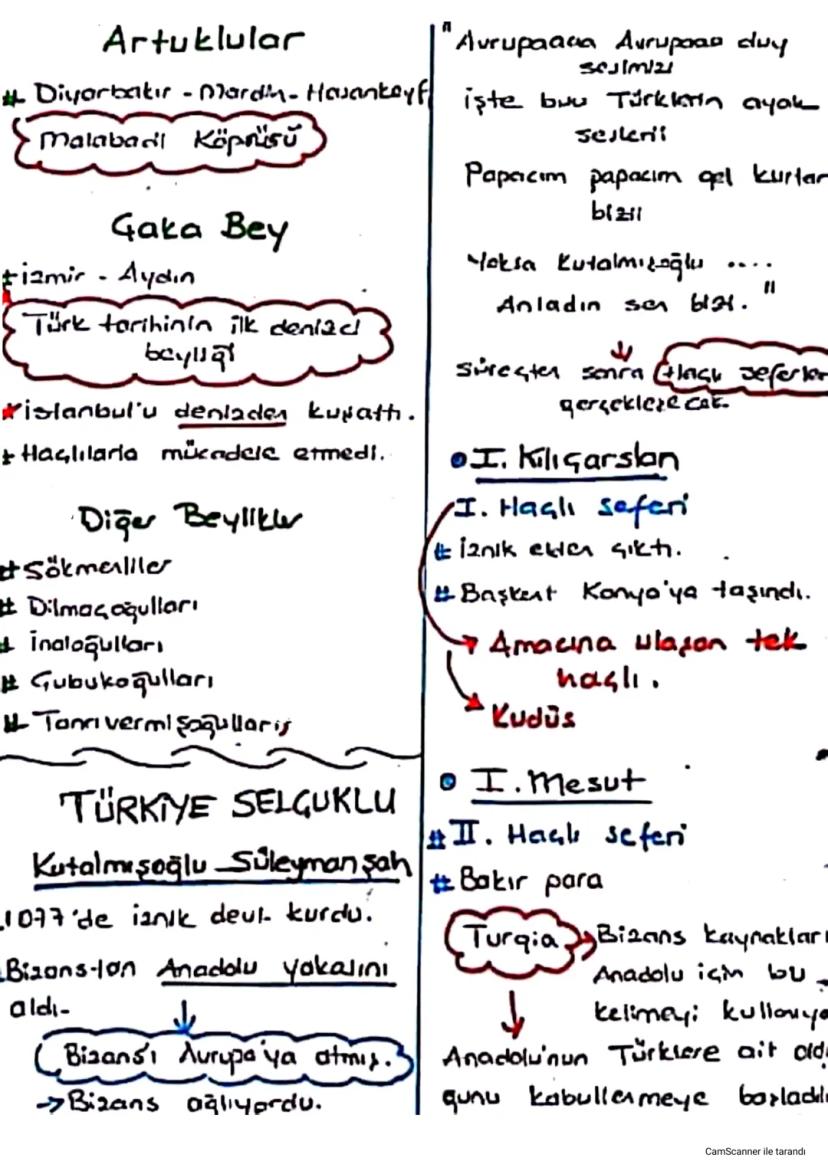 Artuklular
# Diyarbakır - Mardin - Hasankeyf
Malabadi Köprüsü
Çaka Bey
İzmir - Aydın
Türk tarihinin ilk denizci
beyliği
★ İstanbul'u denizden kuşattı.
Haçlılarla mücadele etmedi.
Diğer Beylikler
# Sökmenliler
# Dilmaçoğulları
# İnaloğulları
# Çubukoğulları
# Tanrıvermişoğulları
TÜRKİYE SELÇUKLU
Kutalmışoğlu Süleymanşah
1077'de iznik devl. kurdu.
Bizans-tan Anadolu yakasını
aldı.
↓
Bizans'ı Avrupa'ya atmış.
→ Bizans ağlıyordu.
" Avrupaaaa Avrupaaa duy
sesimizi
işte buu Türklerin ayak
sesleri
Papacım papacım gel kurtar
bizi
Yoksa Kutalmışoğlu ....
Anladın sen bizi. "
↓
Süreçten sonra Haçlı seferler
gerçekleşecek.
I. Kılıçarslan
I. Haçlı seferi
# İznik elden çıktı.
# Başkent Konya'ya taşındı.
Amacına ulaşan tek
haçlı.
Kudüs
I. Mesut
# II. Haçlı seferi
# Bakır para
Turqia → Bizans kaynakları
Anadolu için bu
kelimeyi kullanıyo
↓
Anadolu'nun Türklere ait oldu
ğunu kabullenmeye başladıl
CamScanner ile tarandı